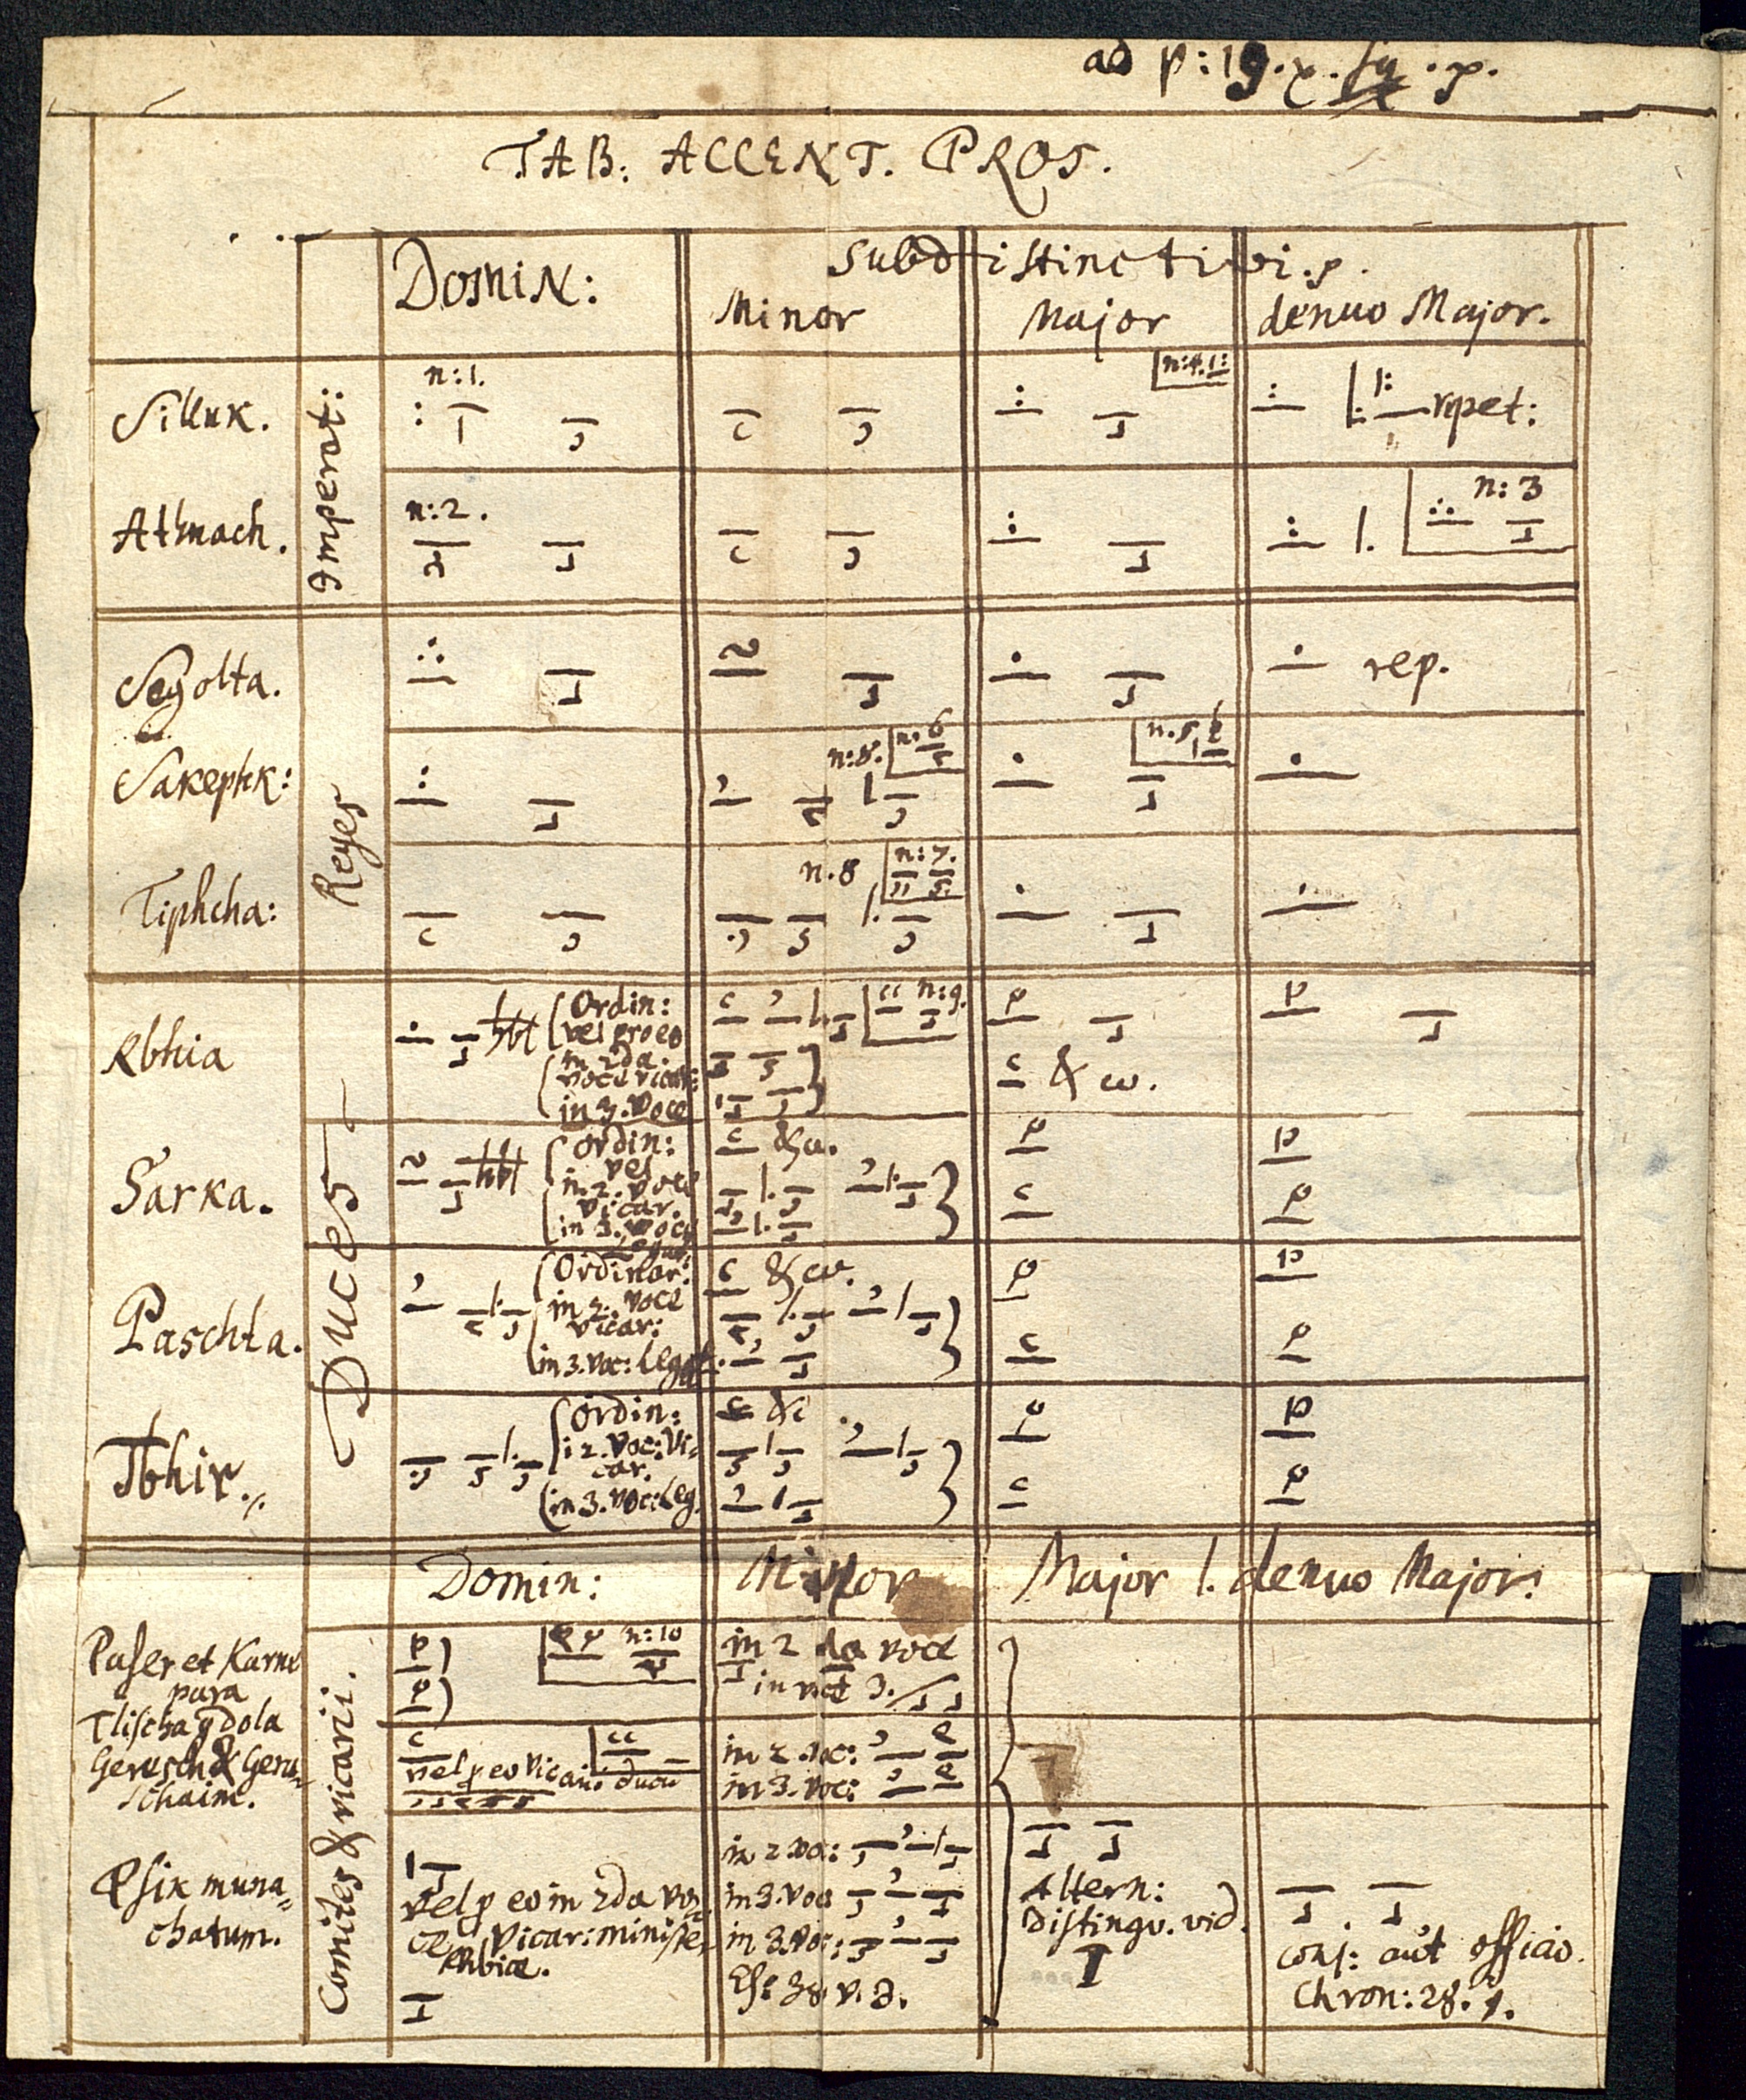 ad p: 19.
TAB: ACCENT. PROS.
Domin:
Subdistinctivi.
Minor
Major
denuo Major.
Imperat:
Silluk.
n:1.
n:4.
repet:
Athnach.
n:2.
n: 3
Reges
Segolta.
rep.
Sakephk:
n:8.
n:6
n.5
Tiphcha:
n.8
n:7.
Duces
Rbhia
Ordin:
vel pro eo
in 2da.
voce vicar:
in 3. voce
n:9.
& w.
Sarka.
Ordin:
vel
in 2. voce
vicar.
in 3. voce
Paschta.
Ordinar:
in 2. voce
vicar:
in 3. voc: Legat.
Tbhir.
Ordin:
i 2. voc: Vi=
car.
in 3. voc: Leg.
Domin:
Minor
Major l. denuo Major:
Comites & vicarii.
Paser et Karne
para
n:10
in 2 da voce
in voce 3.
Tlischa gdola
Geresch & Geru=
schaim.
vel p eo
in 2. voc:
in 3. voc:
Psik muna=
chatum.
vel p eo in 2da vo=
ce vicar: minister
Rhbiae.
in 2 voc:
in 3. voc
in 3. voc:
Altern:
Distingv. vid.
conj: aut officio.
Chron: 28. 1.